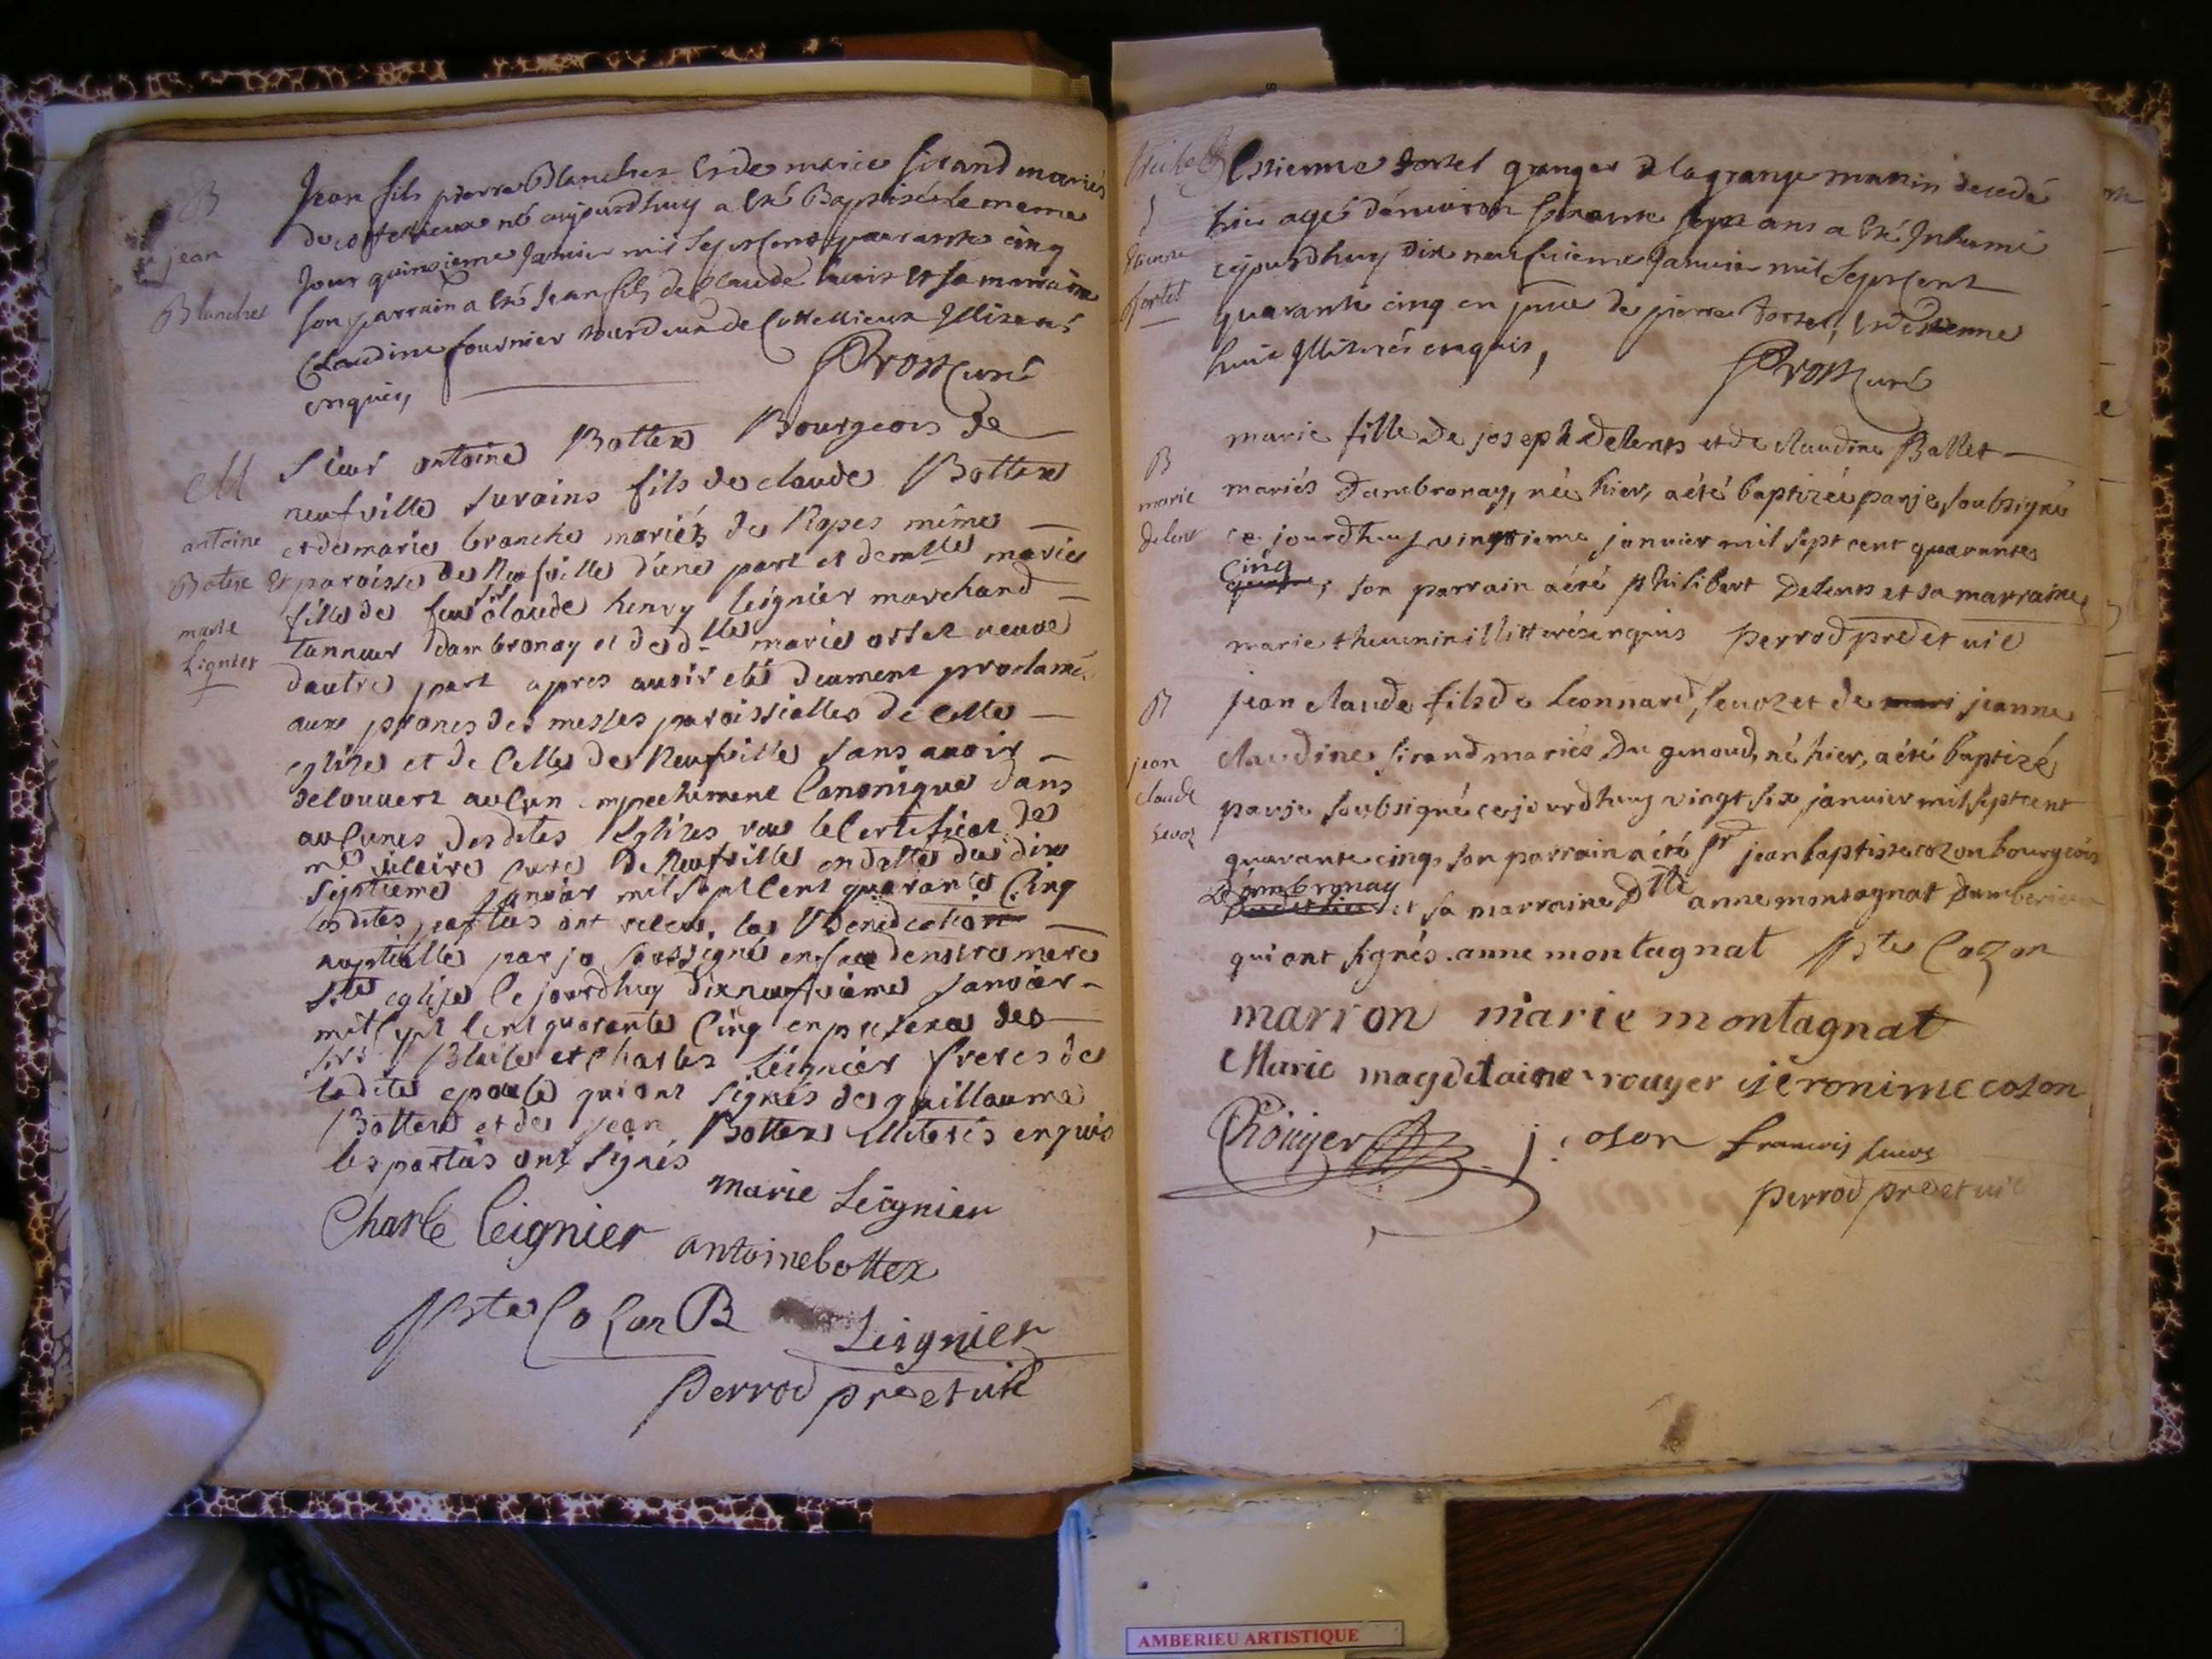 B
jean
Blanchet
Jean fils pierre Blanchet et de marie sirand mariés
de cottelieux né aujourdhuy a été Baptisé le meme
Jour quinzieme Janvier mil sept cent quarante cinq
son parrain a été Jean fils de Claude et sa marraine
Claudine fournier tous deux de Cottellieux Illiterés
enquis,
Curé
M
antoine
Botex Et
marie
Lignier
Sieur antoine Bottex Bourgeois de
neufville surains fils de claude Bottex
et de marie branche mariés de Ropes même
paroisse de Neufville d'une part et de mlle marie
fille de feu sr claude henry leignier marchand
tanneur dambronay et de dlle marie ortet veuve
dautre part apres avoir été deument proclamé
aux prones des messes paroissialles de cette
eglize et de Celle de Neufville sans avoir
decouvert aulcun empechement Canonique dans
aulcunes desdites Eglizes vue le Certificat de
me curé de Neufville en datte du dix
septieme janvier mil sept Cent quarante Cinq
lesdites parties ont receu la Benediction
nuptialle par je soussigné en face de nostre mere
ste eglize Ce jourdhuy dixneufvieme Janvier
mil sept Cent quarante Cinq en presence des
srs Blaise et Charles Leignier freres de
ladite epouse qui ont signés de guillaume
Bottex et de jean Bottex illiterés enquis
les parties ont signés
marie Leignier
Charle leignier antoine bottex
Bte Cozon B Leignier
Perrod pre et vic
Etienne
fortet
Estienne fortet granger de la grange marin decedé
hier agé d'environ soixante sept ans a été Inhumé
cejourdhuy dix neufvieme Janvier mil Sept Cent
quarante cinq en pnce de pierre fortet, et destienne
huit Illiterés enquis,
Curé
B
marie
delent
marie fille de joseph delents et de claudine Ballet
mariés dambronay, née hier, a été baptizée par je soubsigné
ce jourdhuy vingtieme janvier mil sept cent quarante
cinq
son parrain a été philibert delents et sa marraine
marie thevenin illitterés enquis perrod pre et vic
B
jean
claude
Levoz
jean claude fils de Leonnard Levoz et de mari jeanne
claudine sirand mariés du genoud, né hier, a été baptizé
par je soubsigné ce jourdhuy vingt six janvier mil sept cent
quarante cinq, son parrain a été sr jean baptiste cozon bourgeois
Dambronay
et sa marraine Dlle anne montagnat damberieu
qui ont signés. anne montagnat Bte Cozon
marron marie montagnat
Marie magdelaine rouyer jeronime coson
Rouyer j: coson francois
perrod pre et vic
AMBERIEU ARTISTIQUE